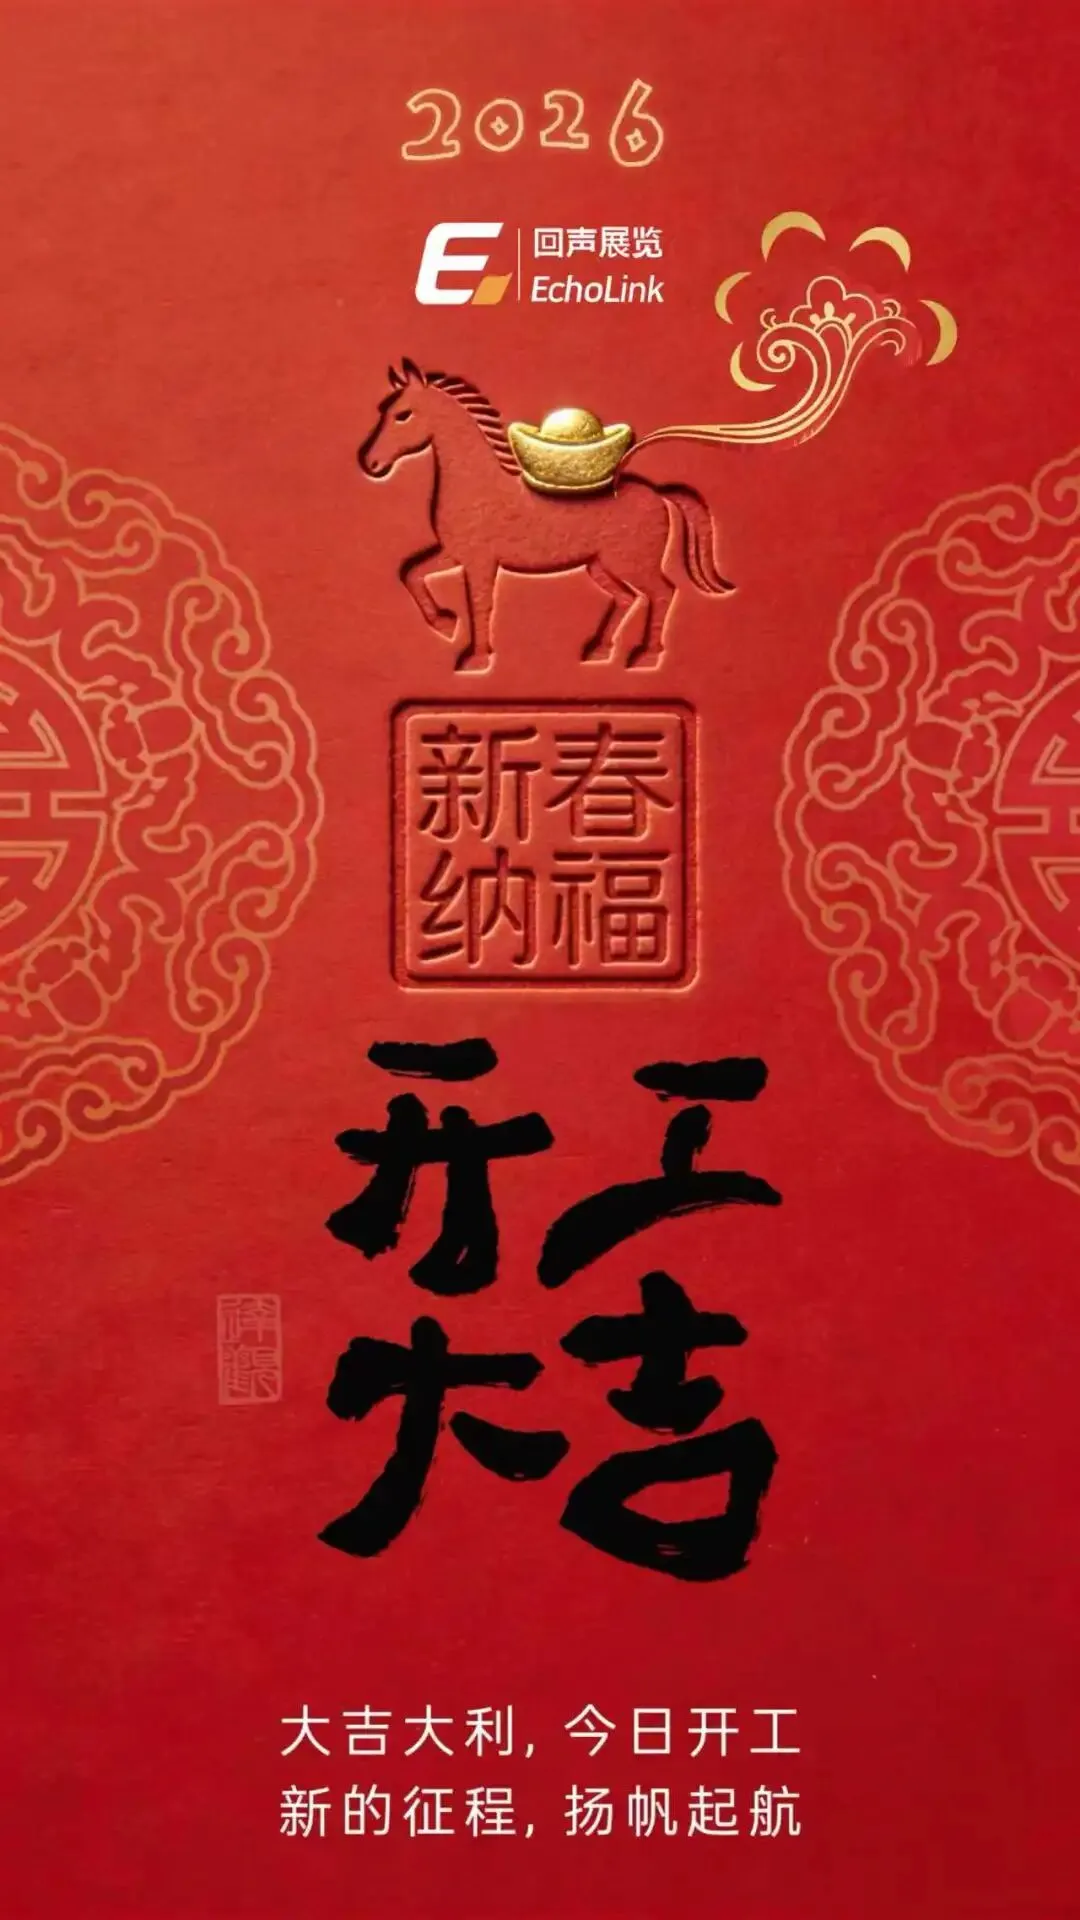 2026
回声展览
EchoLink
新春
纳福
开工
大吉
大吉大利, 今日开工
新的征程, 扬帆起航